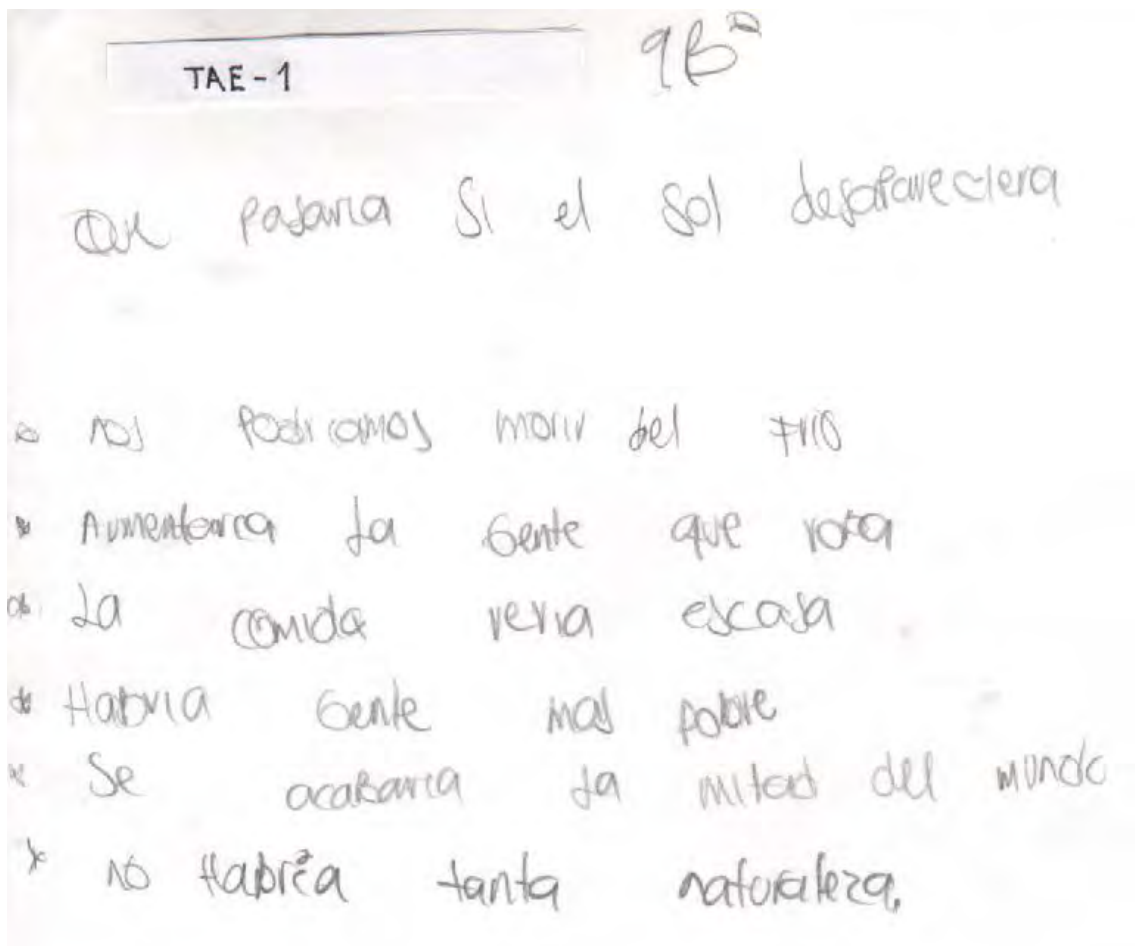 TAE-1
9B
Que pasaria si el sol desapareciera
* nos Podriamos morir del Frio
* Aumentaria La Gente que roba
* La comida veria escasa
* Habria Gente mas pobre
* Se acaBaria La mitad del mundo
* no Habria tanta naturaleza.